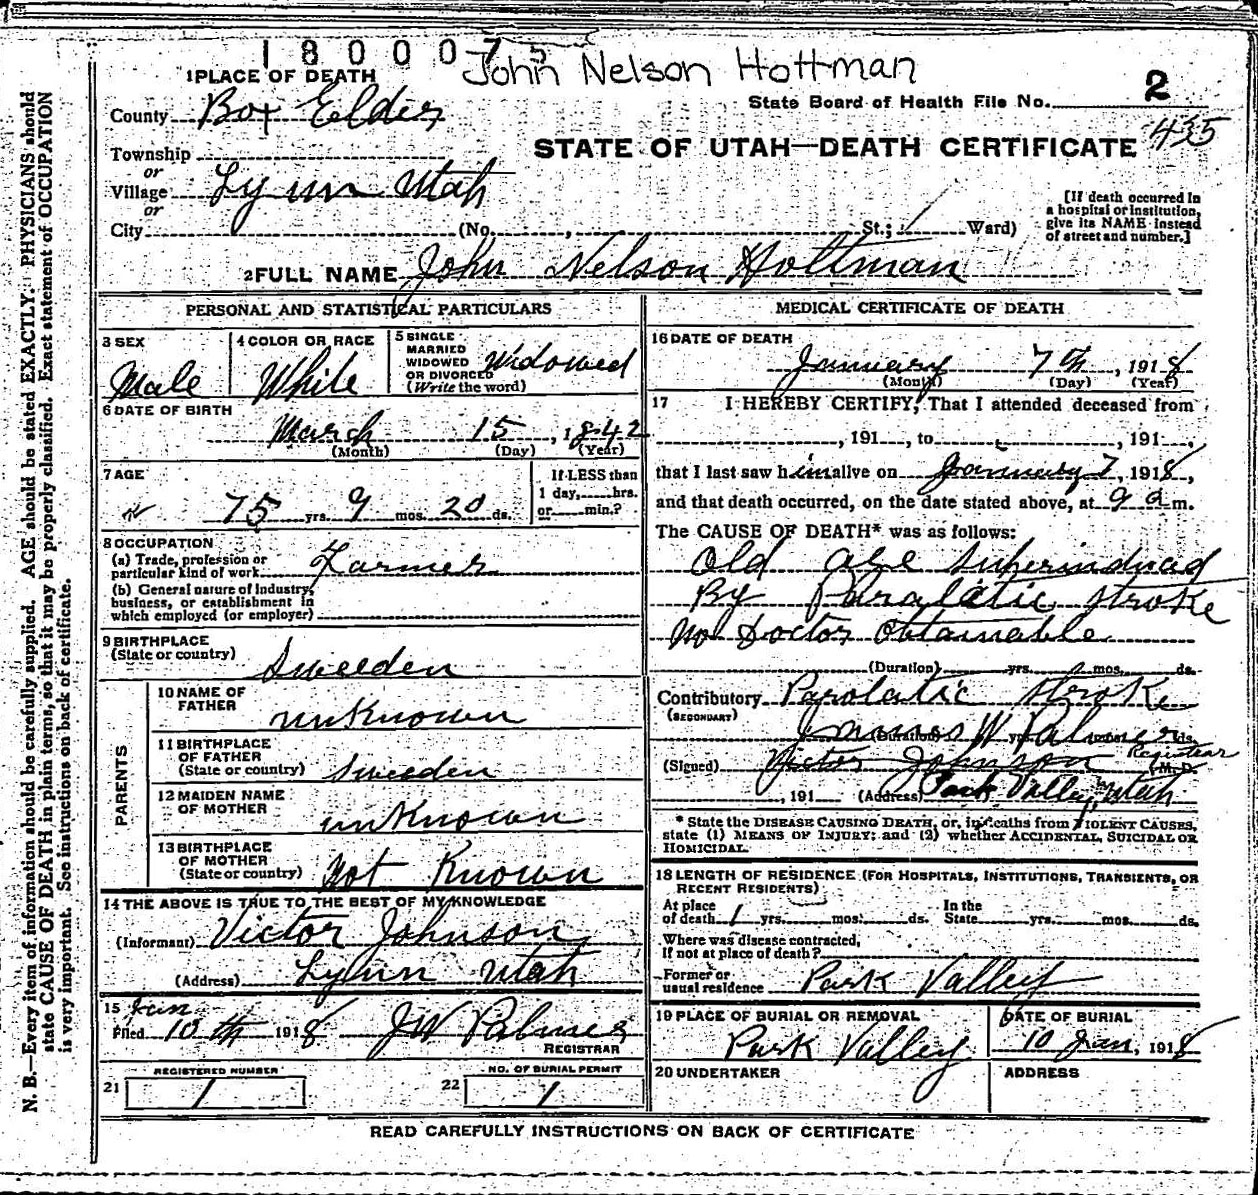 1800075
John Nelson Hottman
1 PLACE OF DEATH
State Board of Health File No. 2
County Box Elder
435
STATE OF UTAH—DEATH CERTIFICATE
Township
or
Village Lynn Utah
or
City (No. , St.; Ward)
[If death occurred in
a hospital or institution,
give its NAME instead
of street and number.]
2 FULL NAME John Nelson Hottman
PERSONAL AND STATISTICAL PARTICULARS
3 SEX
Male
4 COLOR OR RACE
White
5 SINGLE
MARRIED
WIDOWED
OR DIVORCED
(Write the word)
Widowed
6 DATE OF BIRTH
March 15, 1842
(Month) (Day) (Year)
7 AGE
75 yrs. 9 mos. 20 ds.
If LESS than
1 day, hrs.
or min.?
8 OCCUPATION
(a) Trade, profession or
particular kind of work Farmer
(b) General nature of Industry,
business, or establishment in
which employed (or employer)
9 BIRTHPLACE
(State or country)
Sweeden
PARENTS
10 NAME OF
FATHER
unKnown
11 BIRTHPLACE
OF FATHER
(State or country) Sweeden
12 MAIDEN NAME
OF MOTHER
unKnown
13 BIRTHPLACE
OF MOTHER
(State or country) Not Known
14 THE ABOVE IS TRUE TO THE BEST OF MY KNOWLEDGE
(Informant) Victor Johnson
(Address) Lynn Utah
15 Jan
Filed 10th 1918 JW Palmer
REGISTRAR
21 REGISTERED NUMBER
1
22 NO. OF BURIAL PERMIT
1
MEDICAL CERTIFICATE OF DEATH
16 DATE OF DEATH
January 7th, 1918
(Month) (Day) (Year)
17 I HEREBY CERTIFY, That I attended deceased from
, 191 , to , 191 ,
that I last saw him alive on January 7, 1918,
and that death occurred, on the date stated above, at 9 a m.
The CAUSE OF DEATH* was as follows:
Old age Superinduced
By Paralatic Stroke
No Doctor Obtainable
(Duration) yrs. mos. ds.
Contributory Parolatic Stroke
(SECONDARY)
James W Palmer
(Duration) yrs. mos. ds.
Registrar
(Signed) Victor Johnson M. D.
, 191 (Address) Park Valley, Utah
* State the DISEASE CAUSING DEATH, or, in deaths from VIOLENT CAUSES,
state (1) MEANS OF INJURY: and (2) whether ACCIDENTAL, SUICIDAL OR
HOMICIDAL.
18 LENGTH OF RESIDENCE (FOR HOSPITALS, INSTITUTIONS, TRANSIENTS, OR
RECENT RESIDENTS)
At place
of death 1 yrs. mos. ds. In the
State yrs. mos. ds.
Where was disease contracted,
If not at place of death?
Former or
usual residence Park Valley
19 PLACE OF BURIAL OR REMOVAL
Park Valley
DATE OF BURIAL
10 Jan, 1918
20 UNDERTAKER
ADDRESS
READ CAREFULLY INSTRUCTIONS ON BACK OF CERTIFICATE
N. B.—Every item of information should be carefully supplied. AGE should be stated EXACTLY. PHYSICIANS should
state CAUSE OF DEATH in plain terms, so that it may be properly classified. Exact statement of OCCUPATION
is very important. See instructions on back of certificate.